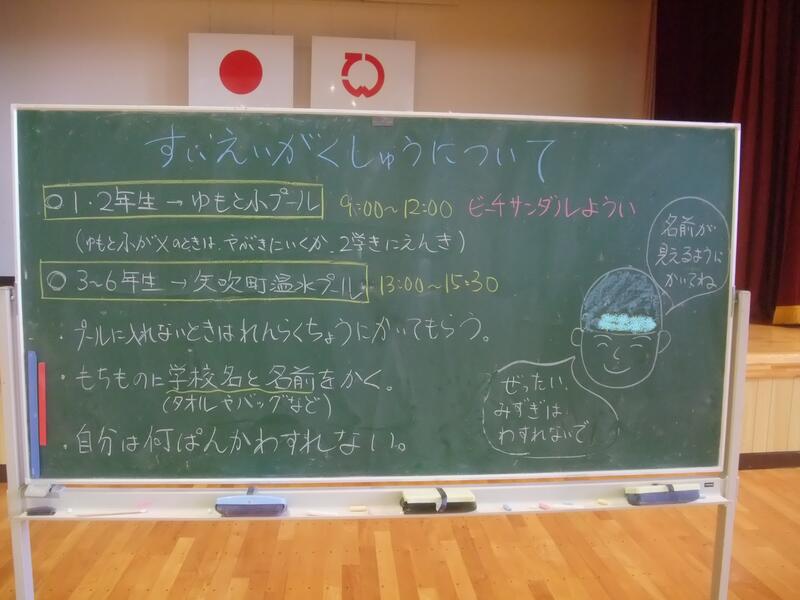 すいえいがくしゅうについて
○1・2年生→ゆもと小プール 9:00〜12:00 ビーチサンダルようい
(ゆもと小が×のときは、やぶきにいくか、2学きにえんき)
○3〜6年生→矢吹町温水プール 13:00〜15:30
・プールに入れないときはれんらくちょうにかいてもらう。
・もちものに学校名と名前をかく。
(タオルやバッグなど)
・自分は何ぱんかわすれない。
名前が
見えるように
かいてね
ぜったい、
みずぎは
わすれないで